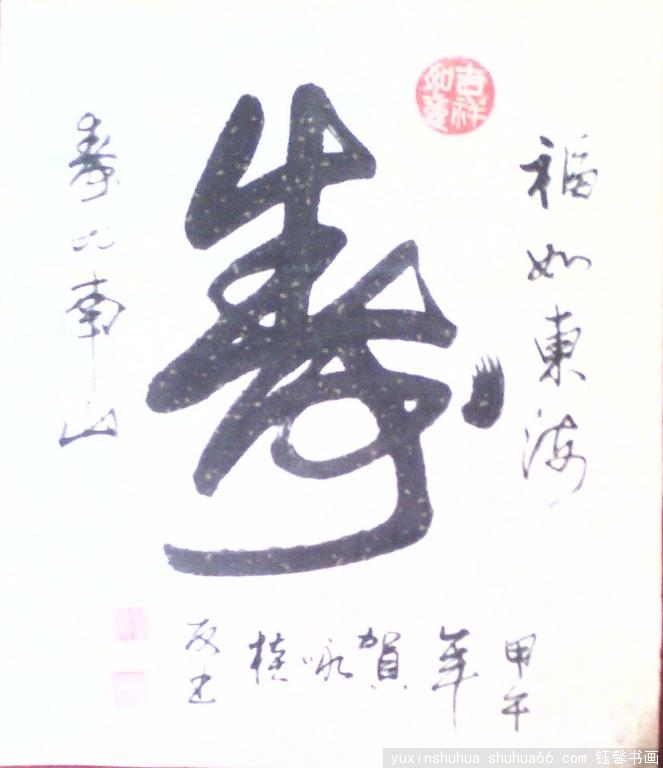 福如東海
吉祥如意
壽
壽比南山
甲午
年
賀
咏
桂
反书
yuxinshuhua.shuhua66.com 钰馨书画